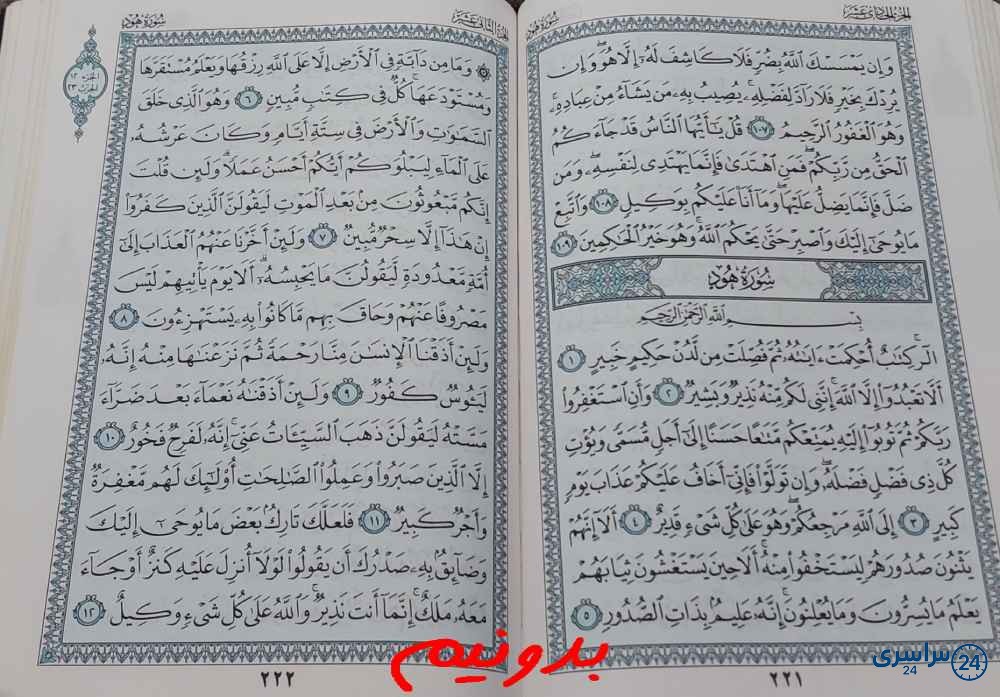 وَإِن يَمْسَسْكَ ٱللَّهُ بِضُرٍّ فَلَا كَاشِفَ لَهُۥٓ إِلَّا هُوَ ۖ وَإِن
يُرِدْكَ بِخَيْرٍ فَلَا رَآدَّ لِفَضْلِهِۦ ۚ يُصِيبُ بِهِۦ مَن يَشَآءُ مِنْ عِبَادِهِۦ ۚ
وَهُوَ ٱلْغَفُورُ ٱلرَّحِيمُ ١٠٧ قُلْ يَٰٓأَيُّهَا ٱلنَّاسُ قَدْ جَآءَكُمُ
ٱلْحَقُّ مِن رَّبِّكُمْ ۖ فَمَنِ ٱهْتَدَىٰ فَإِنَّمَا يَهْتَدِى لِنَفْسِهِۦ ۖ وَمَن
ضَلَّ فَإِنَّمَا يَضِلُّ عَلَيْهَا ۖ وَمَآ أَنَا۠ عَلَيْكُم بِوَكِيلٍ ١٠٨ وَٱتَّبِعْ
مَا يُوحَىٰٓ إِلَيْكَ وَٱصْبِرْ حَتَّىٰ يَحْكُمَ ٱللَّهُ ۚ وَهُوَ خَيْرُ ٱلْحَٰكِمِينَ ١٠٩
سُورَةُ هُودٍ
بِسْمِ ٱللَّهِ ٱلرَّحْمَٰنِ ٱلرَّحِيمِ
الٓر ۚ كِتَٰبٌ أُحْكِمَتْ ءَايَٰتُهُۥ ثُمَّ فُصِّلَتْ مِن لَّدُنْ حَكِيمٍ خَبِيرٍ ١
أَلَّا تَعْبُدُوٓا۟ إِلَّا ٱللَّهَ ۚ إِنَّنِى لَكُم مِّنْهُ نَذِيرٌ وَبَشِيرٌ ٢ وَأَنِ ٱسْتَغْفِرُوا۟
رَبَّكُمْ ثُمَّ تُوبُوٓا۟ إِلَيْهِ يُمَتِّعْكُم مَّتَٰعًا حَسَنًا إِلَىٰٓ أَجَلٍ مُّسَمًّى وَيُؤْتِ
كُلَّ ذِى فَضْلٍ فَضْلَهُۥ ۖ وَإِن تَوَلَّوْا۟ فَإِنِّىٓ أَخَافُ عَلَيْكُمْ عَذَابَ يَوْمٍ
كَبِيرٍ ٣ إِلَى ٱللَّهِ مَرْجِعُكُمْ ۖ وَهُوَ عَلَىٰ كُلِّ شَىْءٍ قَدِيرٌ ٤ أَلَآ إِنَّهُمْ
يَثْنُونَ صُدُورَهُمْ لِيَسْتَخْفُوا۟ مِنْهُ ۚ أَلَا حِينَ يَسْتَغْشُونَ ثِيَابَهُمْ
يَعْلَمُ مَا يُسِرُّونَ وَمَا يُعْلِنُونَ ۚ إِنَّهُۥ عَلِيمٌۢ بِذَاتِ ٱلصُّدُورِ ٥
٢٢١
الجزء الثاني عشر
سورة هود
الجزء ١٢
الحزب ٢٣
۞ وَمَا مِن دَآبَّةٍ فِى ٱلْأَرْضِ إِلَّا عَلَى ٱللَّهِ رِزْقُهَا وَيَعْلَمُ مُسْتَقَرَّهَا
وَمُسْتَوْدَعَهَا ۚ كُلٌّ فِى كِتَٰبٍ مُّبِينٍ ٦ وَهُوَ ٱلَّذِى خَلَقَ
ٱلسَّمَٰوَٰتِ وَٱلْأَرْضَ فِى سِتَّةِ أَيَّامٍ وَكَانَ عَرْشُهُۥ
عَلَى ٱلْمَآءِ لِيَبْلُوَكُمْ أَيُّكُمْ أَحْسَنُ عَمَلًا ۗ وَلَئِن قُلْتَ
إِنَّكُم مَّبْعُوثُونَ مِنۢ بَعْدِ ٱلْمَوْتِ لَيَقُولَنَّ ٱلَّذِينَ كَفَرُوٓا۟
إِنْ هَٰذَآ إِلَّا سِحْرٌ مُّبِينٌ ٧ وَلَئِنْ أَخَّرْنَا عَنْهُمُ ٱلْعَذَابَ إِلَىٰٓ
أُمَّةٍ مَّعْدُودَةٍ لَّيَقُولُنَّ مَا يَحْبِسُهُۥٓ ۗ أَلَا يَوْمَ يَأْتِيهِمْ لَيْسَ
مَصْرُوفًا عَنْهُمْ وَحَاقَ بِهِم مَّا كَانُوا۟ بِهِۦ يَسْتَهْزِءُونَ ٨
وَلَئِنْ أَذَقْنَا ٱلْإِنسَٰنَ مِنَّا رَحْمَةً ثُمَّ نَزَعْنَٰهَا مِنْهُ إِنَّهُۥ
لَيَـُٔوسٌ كَفُورٌ ٩ وَلَئِنْ أَذَقْنَٰهُ نَعْمَآءَ بَعْدَ ضَرَّآءَ
مَسَّتْهُ لَيَقُولَنَّ ذَهَبَ ٱلسَّيِّـَٔاتُ عَنِّىٓ ۚ إِنَّهُۥ لَفَرِحٌ فَخُورٌ ١٠
إِلَّا ٱلَّذِينَ صَبَرُوا۟ وَعَمِلُوا۟ ٱلصَّٰلِحَٰتِ أُو۟لَٰٓئِكَ لَهُم مَّغْفِرَةٌ
وَأَجْرٌ كَبِيرٌ ١١ فَلَعَلَّكَ تَارِكٌۢ بَعْضَ مَا يُوحَىٰٓ إِلَيْكَ
وَضَآئِقٌۢ بِهِۦ صَدْرُكَ أَن يَقُولُوا۟ لَوْلَآ أُنزِلَ عَلَيْهِ كَنزٌ أَوْ جَآءَ
مَعَهُۥ مَلَكٌ ۚ إِنَّمَآ أَنتَ نَذِيرٌ ۚ وَٱللَّهُ عَلَىٰ كُلِّ شَىْءٍ وَكِيلٌ ١٢
٢٢٢
بدونیم
سراسری 24
24